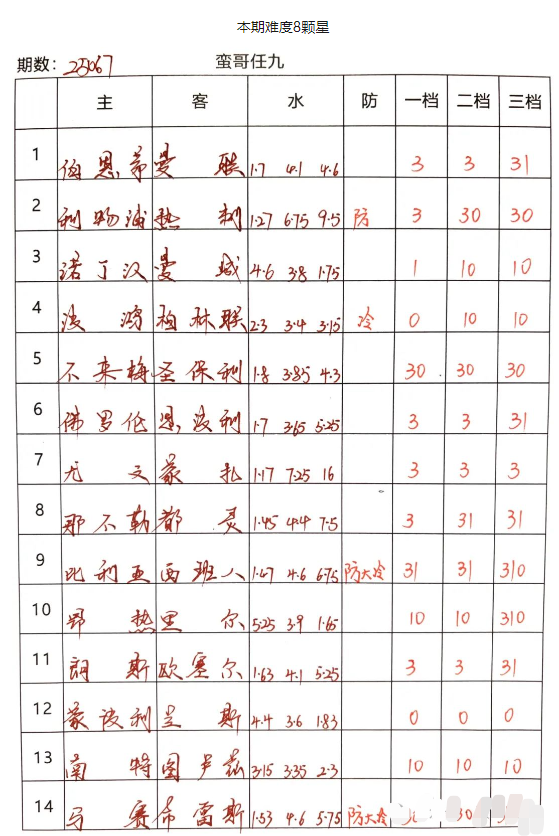 本期难度8颗星
期数: 25067 蛮哥任九
主 客 水 防 一档 二档 三档
1 伯恩茅 曼联 1.7 4.1 4.6 3 3 31
2 利物浦 热刺 1.27 6.75 9.5 防 3 30 30
3 诺丁汉 曼城 4.6 3.8 1.75 1 10 10
4 波鸿 柏林联 2.3 3.4 3.15 冷 0 10 10
5 不来梅 圣保利 1.8 3.85 4.3 30 30 30
6 佛罗伦 恩波利 1.7 3.65 5.25 3 3 31
7 尤文 蒙扎 1.17 7.25 16 3 3 3
8 那不勒 都灵 1.45 4.4 7.5 3 31 31
9 比利亚 西班人 1.47 4.6 6.75 防大冷 31 31 310
10 昂热 里尔 5.25 3.9 1.65 10 10 310
11 朗斯 欧塞尔 1.63 4.1 5.25 3 3 31
12 蒙彼利 兰斯 4.4 3.6 1.83 0 0 0
13 南特 图卢兹 3.15 3.35 2.3 10 10 10
14 马赛 布雷斯 1.53 4.6 5.75 防大冷 30